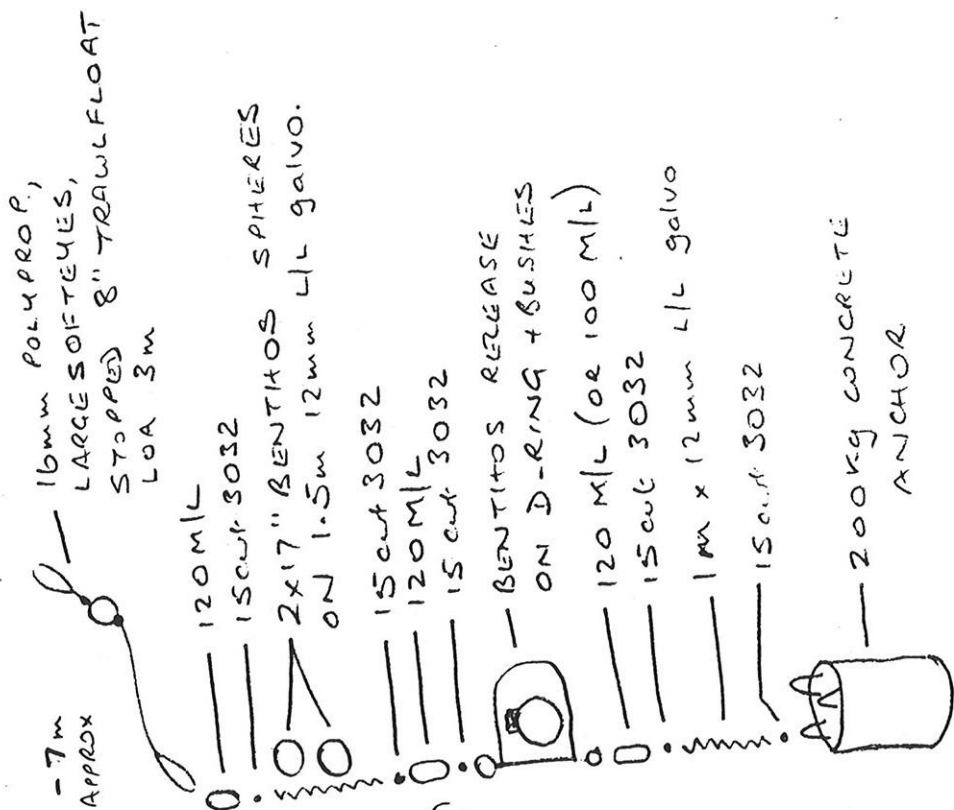 ~7m
APPROX
16mm POLYPROP.,
LARGE SOFT EYES,
STOPPED 8" TRAWLFLOAT
LOA 3m
120 M/L
15cwt 3032
2x17" BENTHOS SPHERES
ON 1.5m 12mm L/L galvo.
15cwt 3032
120 M/L
15 cwt 3032
BENTHOS RELEASE
ON D-RING + BUSHES
120 M/L (OR 100 M/L)
15 cwt 3032
1m x 12mm L/L galvo
15 cwt 3032
200Kg CONCRETE
ANCHOR